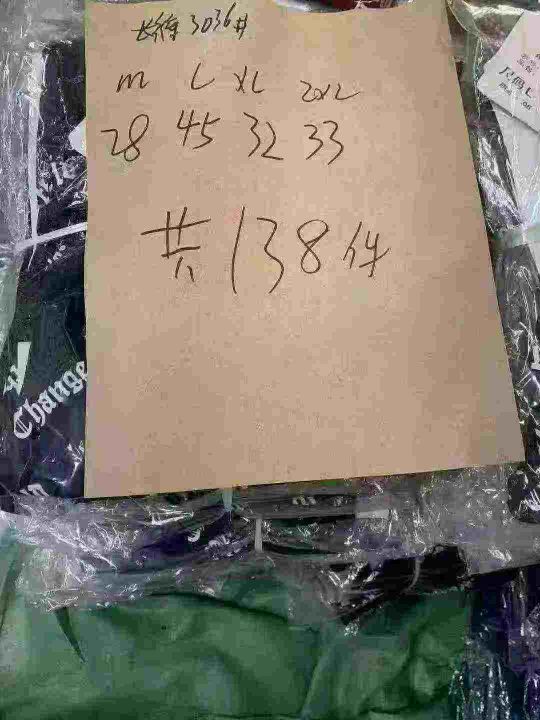 3036#
M L XL 2XL
28 45 32 33
共138件
尺码L
Change